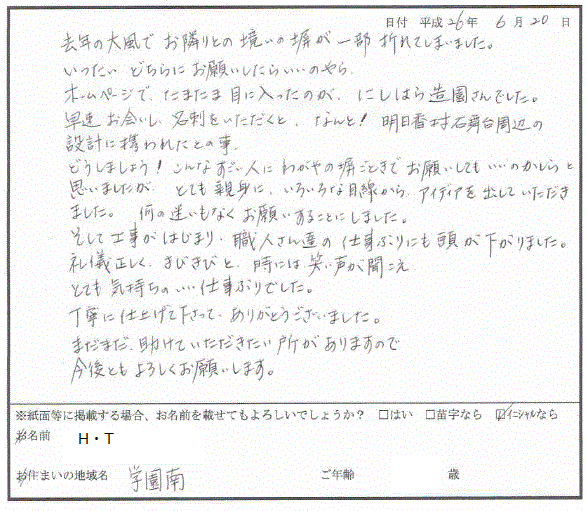 日付 平成26年 6月20日
去年の大風で お隣りとの境いの塀が一部 折れてしまいました。
いったい どちらにお願いしたらいいのやら、
ホームページで、たまたま目に入ったのが、にしはら造園さんでした。
早速お会いし、名刺をいただくと、なんと！明日香村石舞台周辺の
設計に携われたとの事、
どうしましょう！こんなすごい人に わがやの塀ごときでお願いしてもいいのかしらと
思いましたが、とても親身に、いろいろな目線から、アイディアを出していただき
ました。何の迷いもなくお願いすることにしました。
そして工事がはじまり、職人さん達の仕事ぶりにも頭が下がりました。
礼儀正しく、きびきびと、時には笑い声が聞こえ
とても気持ちのいい仕事ぶりでした。
丁寧に仕上げて下さって、ありがとうございました。
まだまだ、助けていただきたい所がありますので
今後ともよろしくお願いします。
※紙面等に掲載する場合、お名前を載せてもよろしいでしょうか？ □はい □苗字なら ☑イニシャルなら
お名前 H・T
お住まいの地域名 学園南 ご年齢 歳